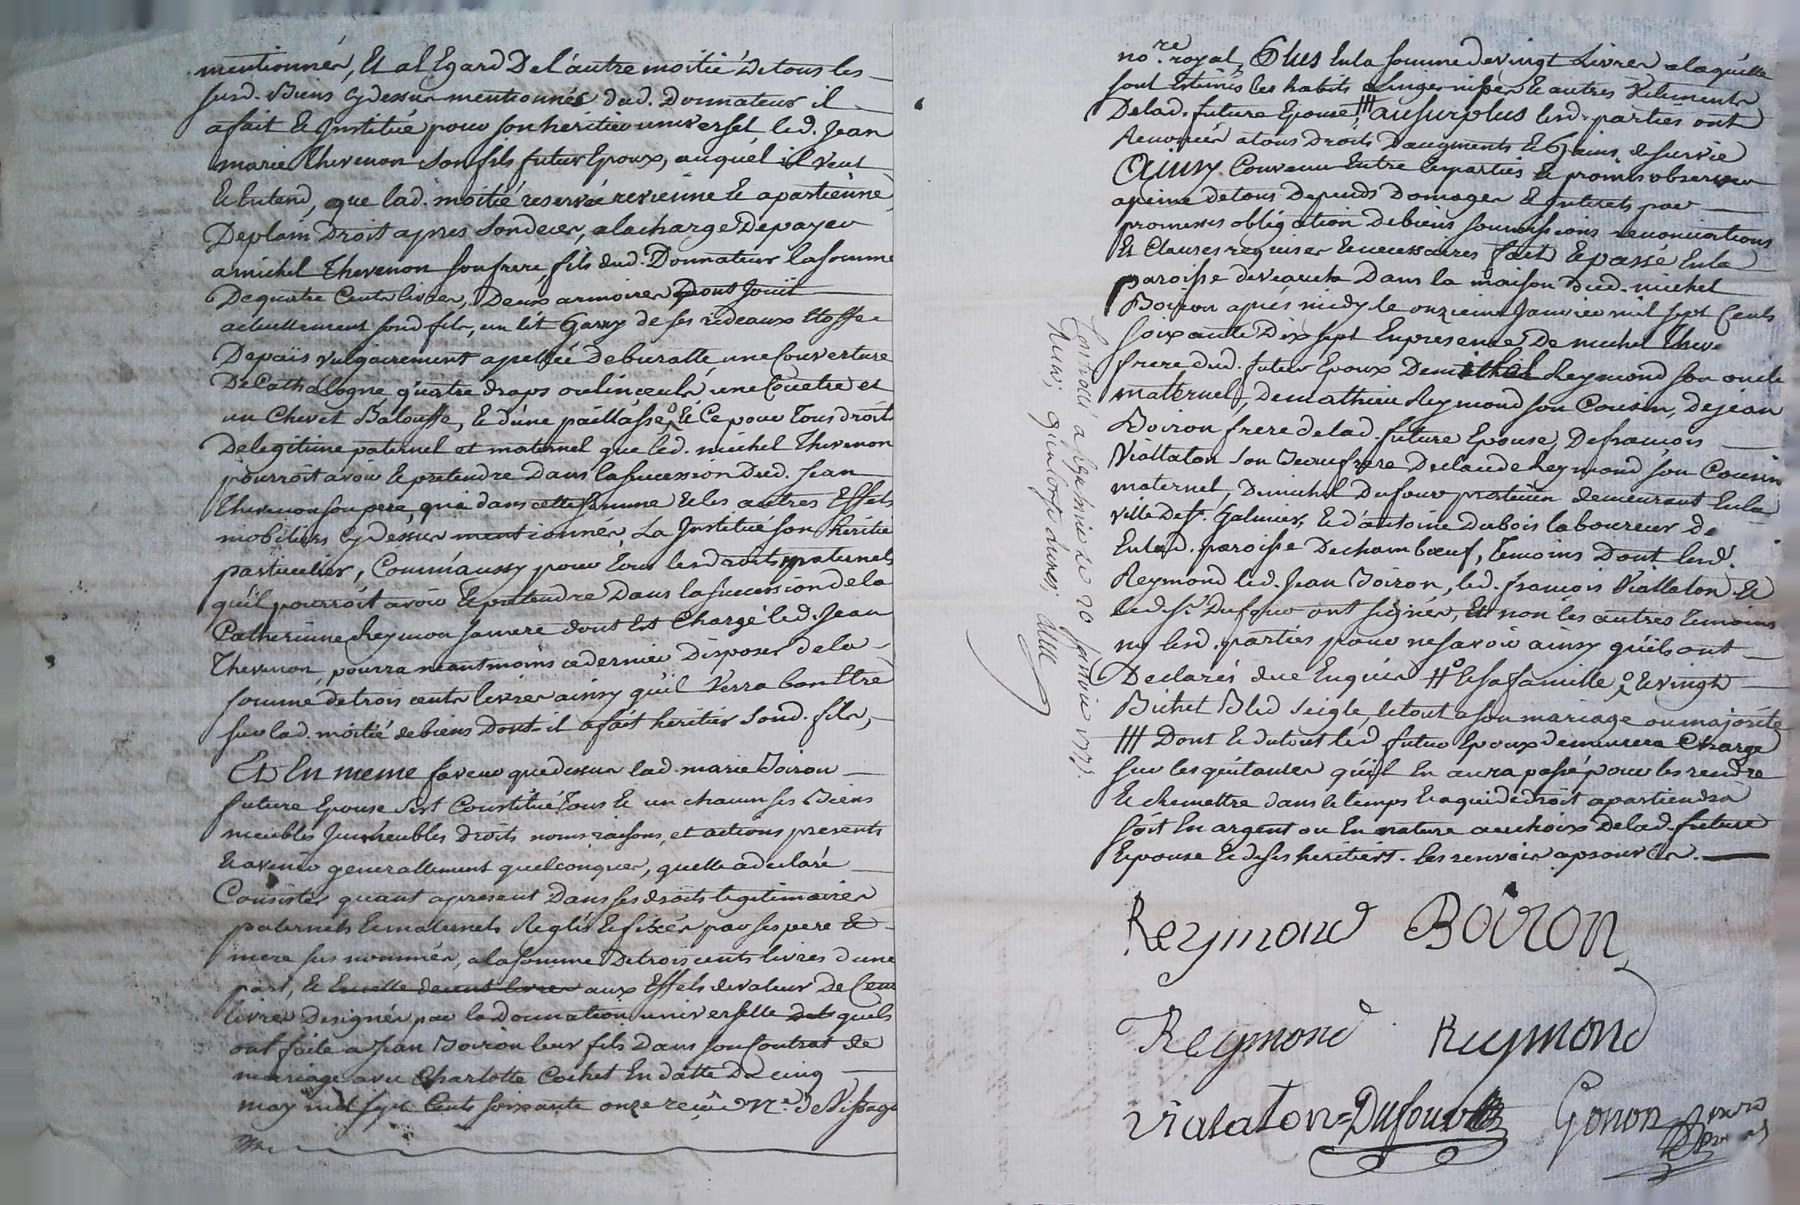 mentionnés, Et al Egard De l'autre moitié De tous les
susd. Biens cy dessus mentionnés dud. Donnateur il
a fait & Institué pour son heritier universel led. Jean
marie Thevenon son fils futur Epoux, auquél il veut
& Entend, que lad. moitié reservée revienne & apartienne
De plain Droit apres son deces, a la charge De payer
a michel Thevenon son frere, fils dud. Donnateur la somme
De quatre Cents livres, Deux armoires Dont Jouit
actuellement sond fils, un lit Garny de ses rideaux Etoffe
De païs vulgairement apellée de buratte une Couverture
De Cathalogne quatre draps ou linceuls une Couetre et
un Chevet Balouffe, & d'une paillasse, & Ce pour Tous droits
De legitime paternel et maternel que led. michel Thevenon
pourroit avoir & pretendre Dans la sucession Dud. Jean
Thevenon son pere, que dans cette somme & les autres Effets
mobiliers cy dessus mentionnés, La Institué son heritier
particulier, Comm'aussy pour Tous les droits maternels
qu'il pourroit avoir & pretendre Dans la sucession de la
Catherinne Reymon sa mere dont Est Chargé led. Jean
Thevenon, pourra neantmoins ce dernier Disposer de la
somme de trois cents livres ainsy qu'il verra bon Etre
sur lad. moitié de biens Dont il a fait heritier sond. fils,
Et En meme faveur que dessus lad. marie Boiron
future Epouse s'est Constitué Tous & un chacun ses Biens
meubles Immeubles Droits noms raisons, et actions presents
& avenir generallement quelconques, quelle a declaré
Consister quant apresent Dans ses droits legitimaires
paternels & maternels Reglés & fixés par ses pere &
mere sus nommés, a la somme De trois cents livres d'une
part, & aux Effets de valeur De Cent
livres designés par la Donnation universelle quils
ont faite a Jean Boiron leur fils Dans son Contrat de
mariage avec Charlotte Cochet En datte Du cinq
may mil sept Cents soixante onze reçu Me. De Vissaguet
nore. royal, Plus En la somme de vingt Livres a laquelle
sont Estimés les habits Linges nipes & autres Vetements
De lad. future Epouse /// au surplus lesd. parties ont
Renoncés a tous Droits D'augments & Gains de survie
Ainsy Convenu Entre les parties & promis observer
a peine de tous Depends Domages & Interets par
promesses obligation de biens soumissions renonciations
Et Clauses requises & necessaires fait & passé En la
paroisse de veauche Dans la maison Dud. michel
Boiron apres midy le onzieme Janvier mil sept Cents
soixante Dix sept En presence De michel Theve
frere dud. futur Epoux De michel Reymond son oncle
maternel, De mathieu Reymond son Cousin, De jean
Boiron frere de lad. future Epouse, De francois
Viallaton son Beaufrere De claude Reymond son Cousin
maternel, De michel Dufour praticien demeurant En la
ville De St. Galmier, & d'antoine Dubois laboureur de
En lad. paroisse De chambœuf, Temoins Dont lesd.
Reymond led. Jean Boiron, led. francois Viallaton &
led. Sr. Dufour ont signés, Et non les autres Temoins
ny lesd. parties pour ne savoir ainsy quils ont
Declarés De ce Enquis # & sa famille & vingt
Bichet Bled Seigle, le tout a son mariage ou majorité
/// Dont & du tout led futur Epoux demeurera Chargé
sur les quitances qu'il En aura passé pour les rendre
& remettre dans le temps & a qui de droit apartiendra
soit En argent ou En nature au choix De lad. future
Epouse & de ses heritiers. les renvois aprouvés.
Controllé a St galmier Le 20 janvier 1777.
Reçu; quatorze livres,
Reymond Boiron
Reymond Reymond
Vialaton Dufour Gonon